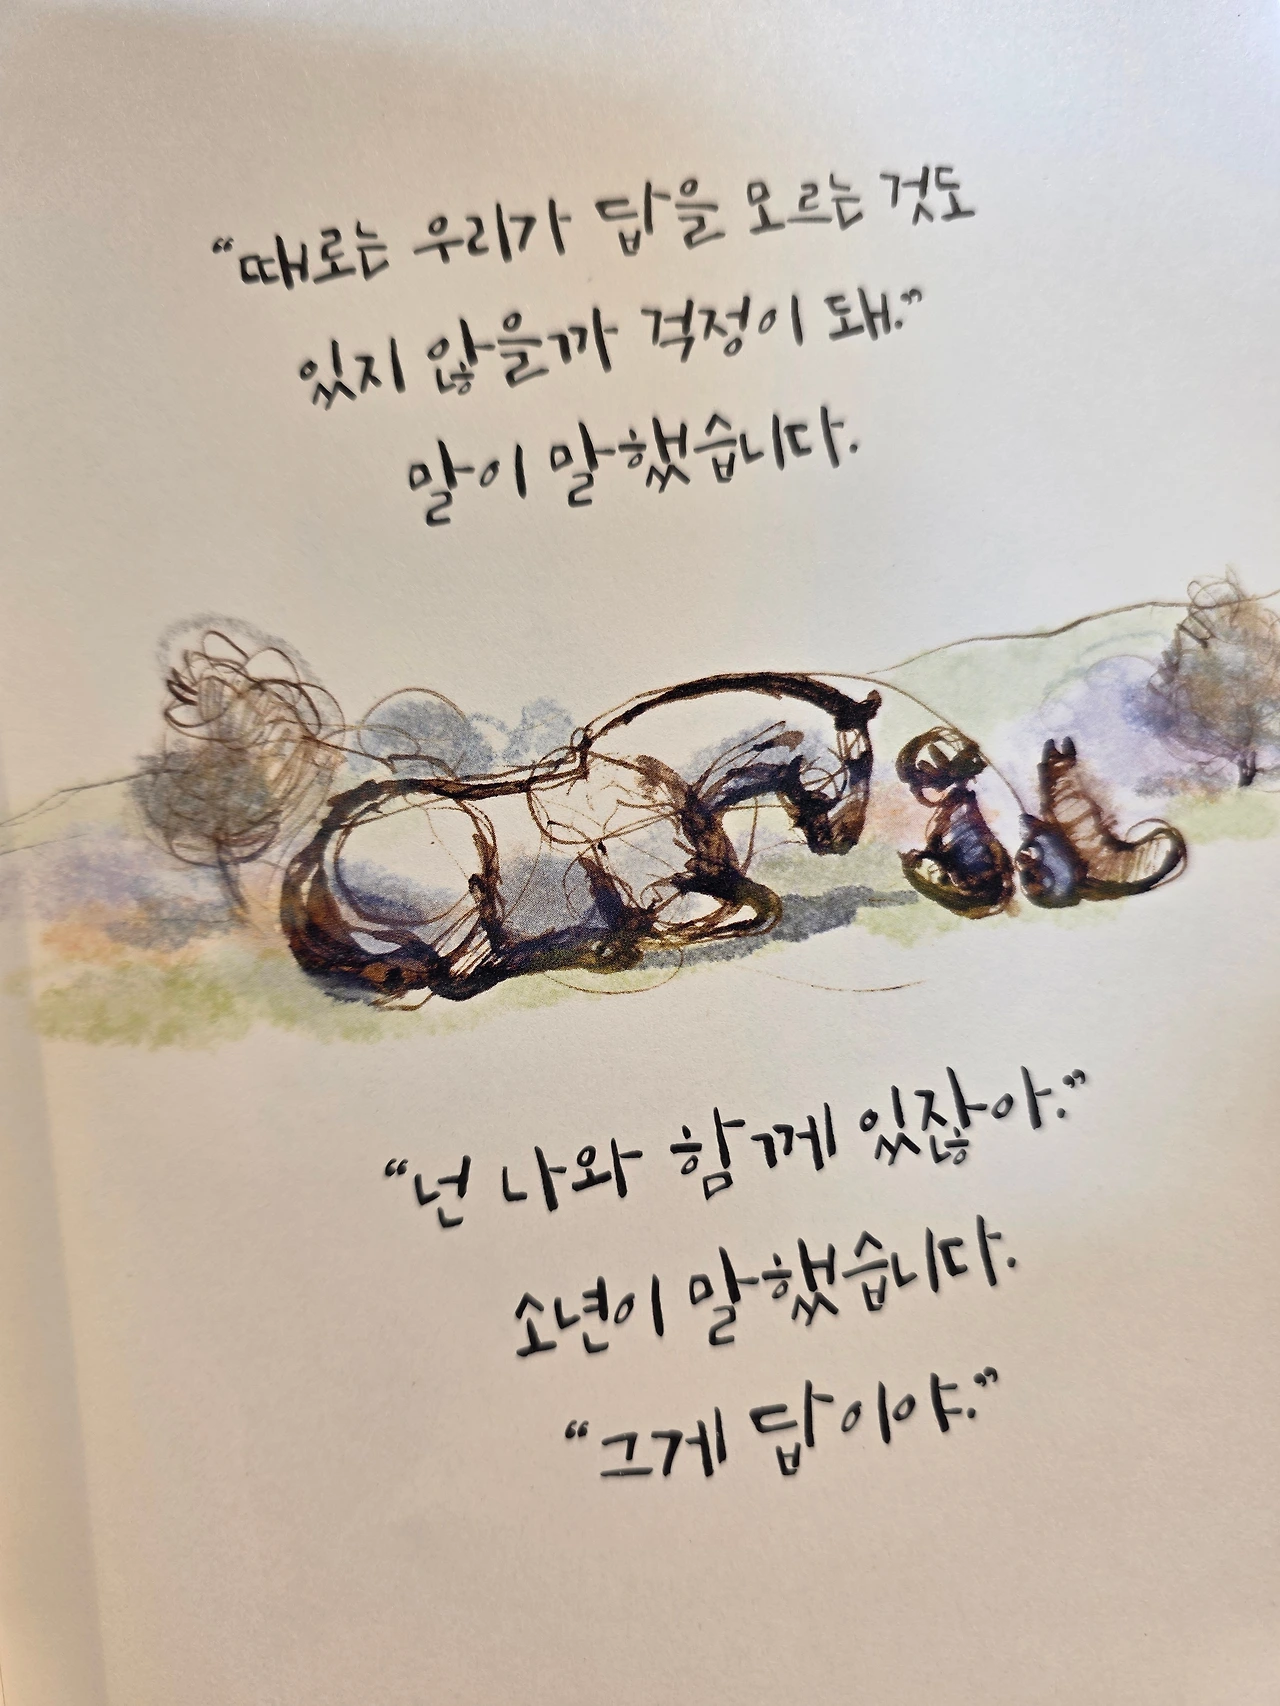 “때로는 우리가 답을 모르는 것도
있지 않을까 걱정이 돼.”
말이 말했습니다.
“넌 나와 함께 있잖아.”
소년이 말했습니다.
“그게 답이야.”